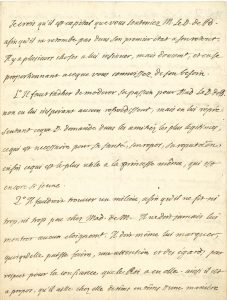 Je crois qu'il est capital que vous souteniez M. Le D. de
afin qu'il ne retombe pas dans son premier état a son retour.
Il y a plusieurs choses a lui insinuer, mais doucement, et en se
proportionnant a ce que vous connoissez de son besoin.
1° Il faut tacher de moderer sa passion pour Mad. Le D. de B.
non en lui inspirant aucun refroidissement, mais en lui repre-
sentant ce que D. demande dans les amitiés les plus legitimes,
ce qui est necessaire pour sa santé, son repos, sa reputation,
enfin ce qui est le plus utile a la princesse même, qui est
encore si jeune.
2° Il faudroit trouver un milieu afin qu'il ne fut ni
trop, ni trop peu chez Mad. de M. Il ne doit jamais lui
montrer aucun eloignement. Il doit même lui marquer,
quoiqu'elle puisse faire, une attention et des égards par
respect pour la confiance que le Roi a en elle. mais il est
a propos qu'il aille chez elle de tems en tems d'une maniere